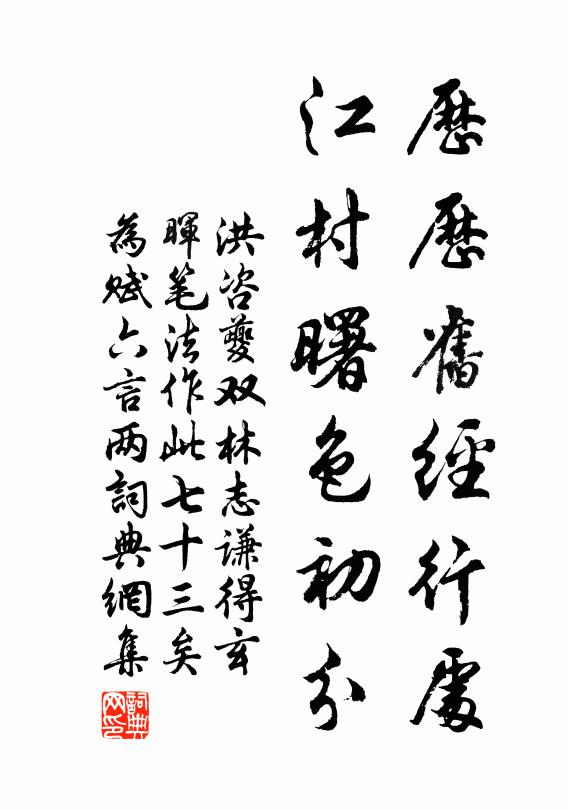 歷歷舊經行處
江村曙色初分
洪咨夔双林志谦得玄
暉笔法作此七十三矣
為赋六言两詞典網集
詞典网印